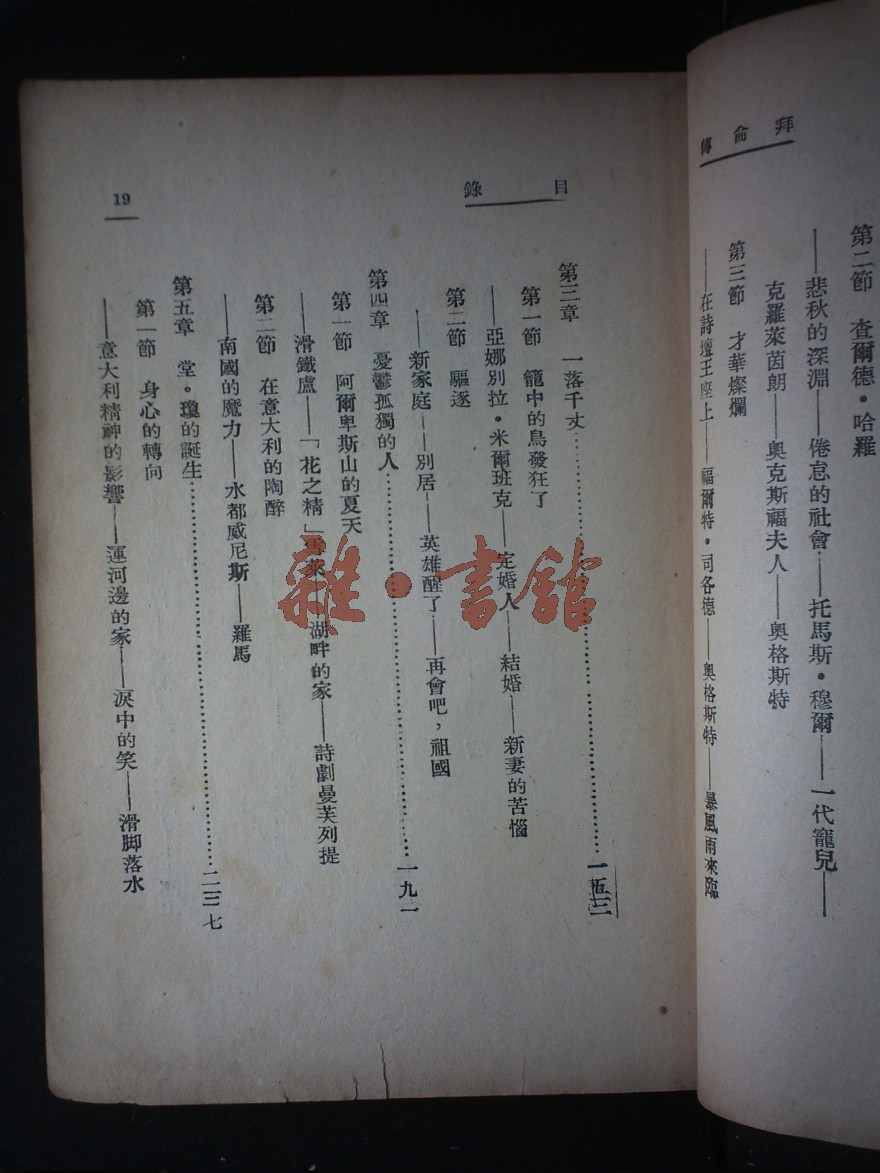 拜侖傳
第二節 查爾德·哈羅
——悲秋的深淵——倦怠的社會——托馬斯·穆爾——一代寵兒——
克羅萊茵朗——奧克斯福夫人——奧格斯特
第三節 才華燦爛
——在詩壇王座上——福爾特·司各德——奧格斯特——暴風雨來臨
目錄
第三章 一落千丈…………一五三
第一節 籠中的鳥發狂了
——亞娜別拉·米爾班克——定婚人——結婚——新妻的苦惱
第二節 驅逐
——新家庭——別居——英雄醒了——再會吧，祖國
第四章 憂鬱孤獨的人…………一九一
第一節 阿爾卑斯山的夏天
——滑鐵盧——「花之精」雪萊——湖畔的家——詩劇曼芙列提
第二節 在意大利的陶醉
——南國的魔力——水都威尼斯——羅馬
第五章 堂·瓊的誕生…………二三七
第一節 身心的轉向
——意大利精神的影響——運河邊的家——淚中的笑——滑脚落水
19
雜·書館